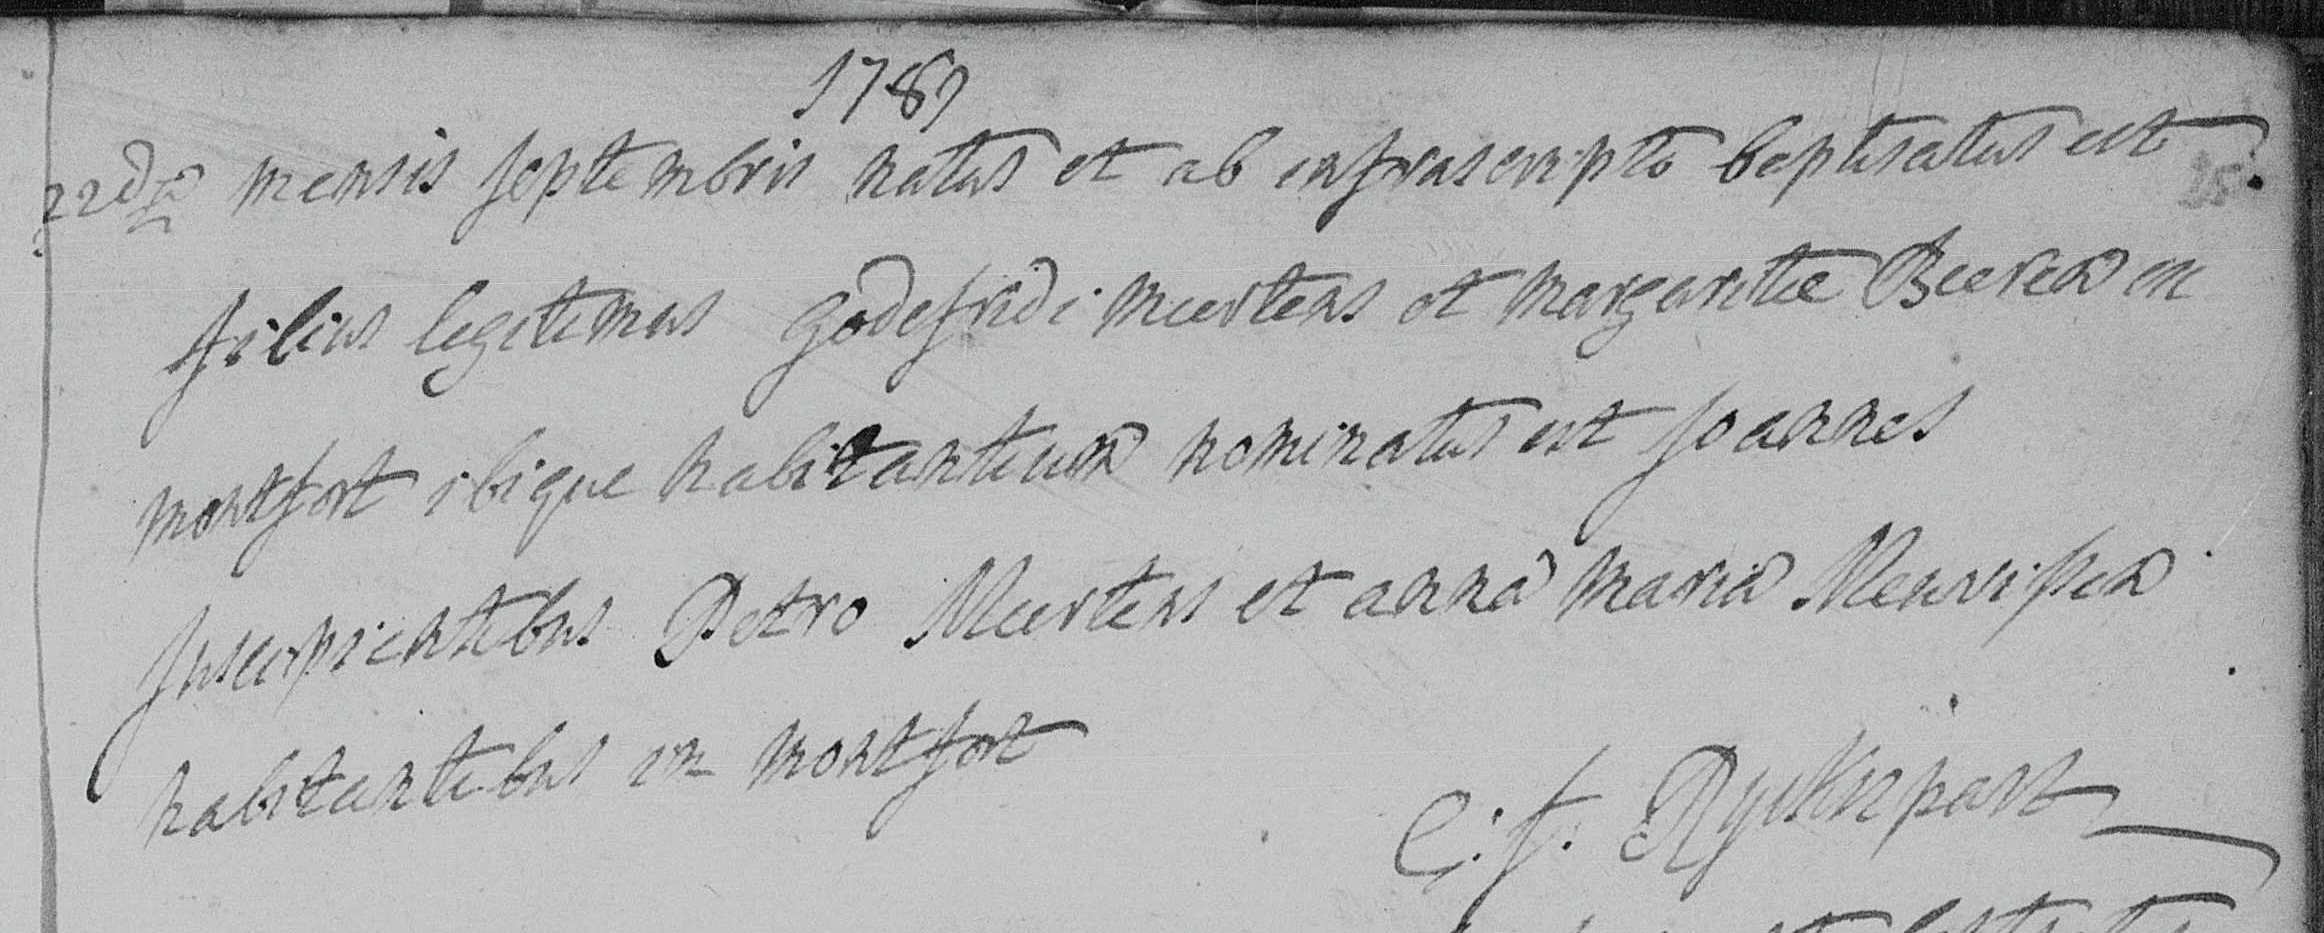 1789
22da mensis septembris natus et ab infrascripto baptisatus est
filius legitimus godefridi meertens et margaritæ Beeren in
montfort ibique habitantium nominatus est joannes
suscipientibus Petro Meertens et anna maria Meuvissen
habitantibus in montfort
C: f: